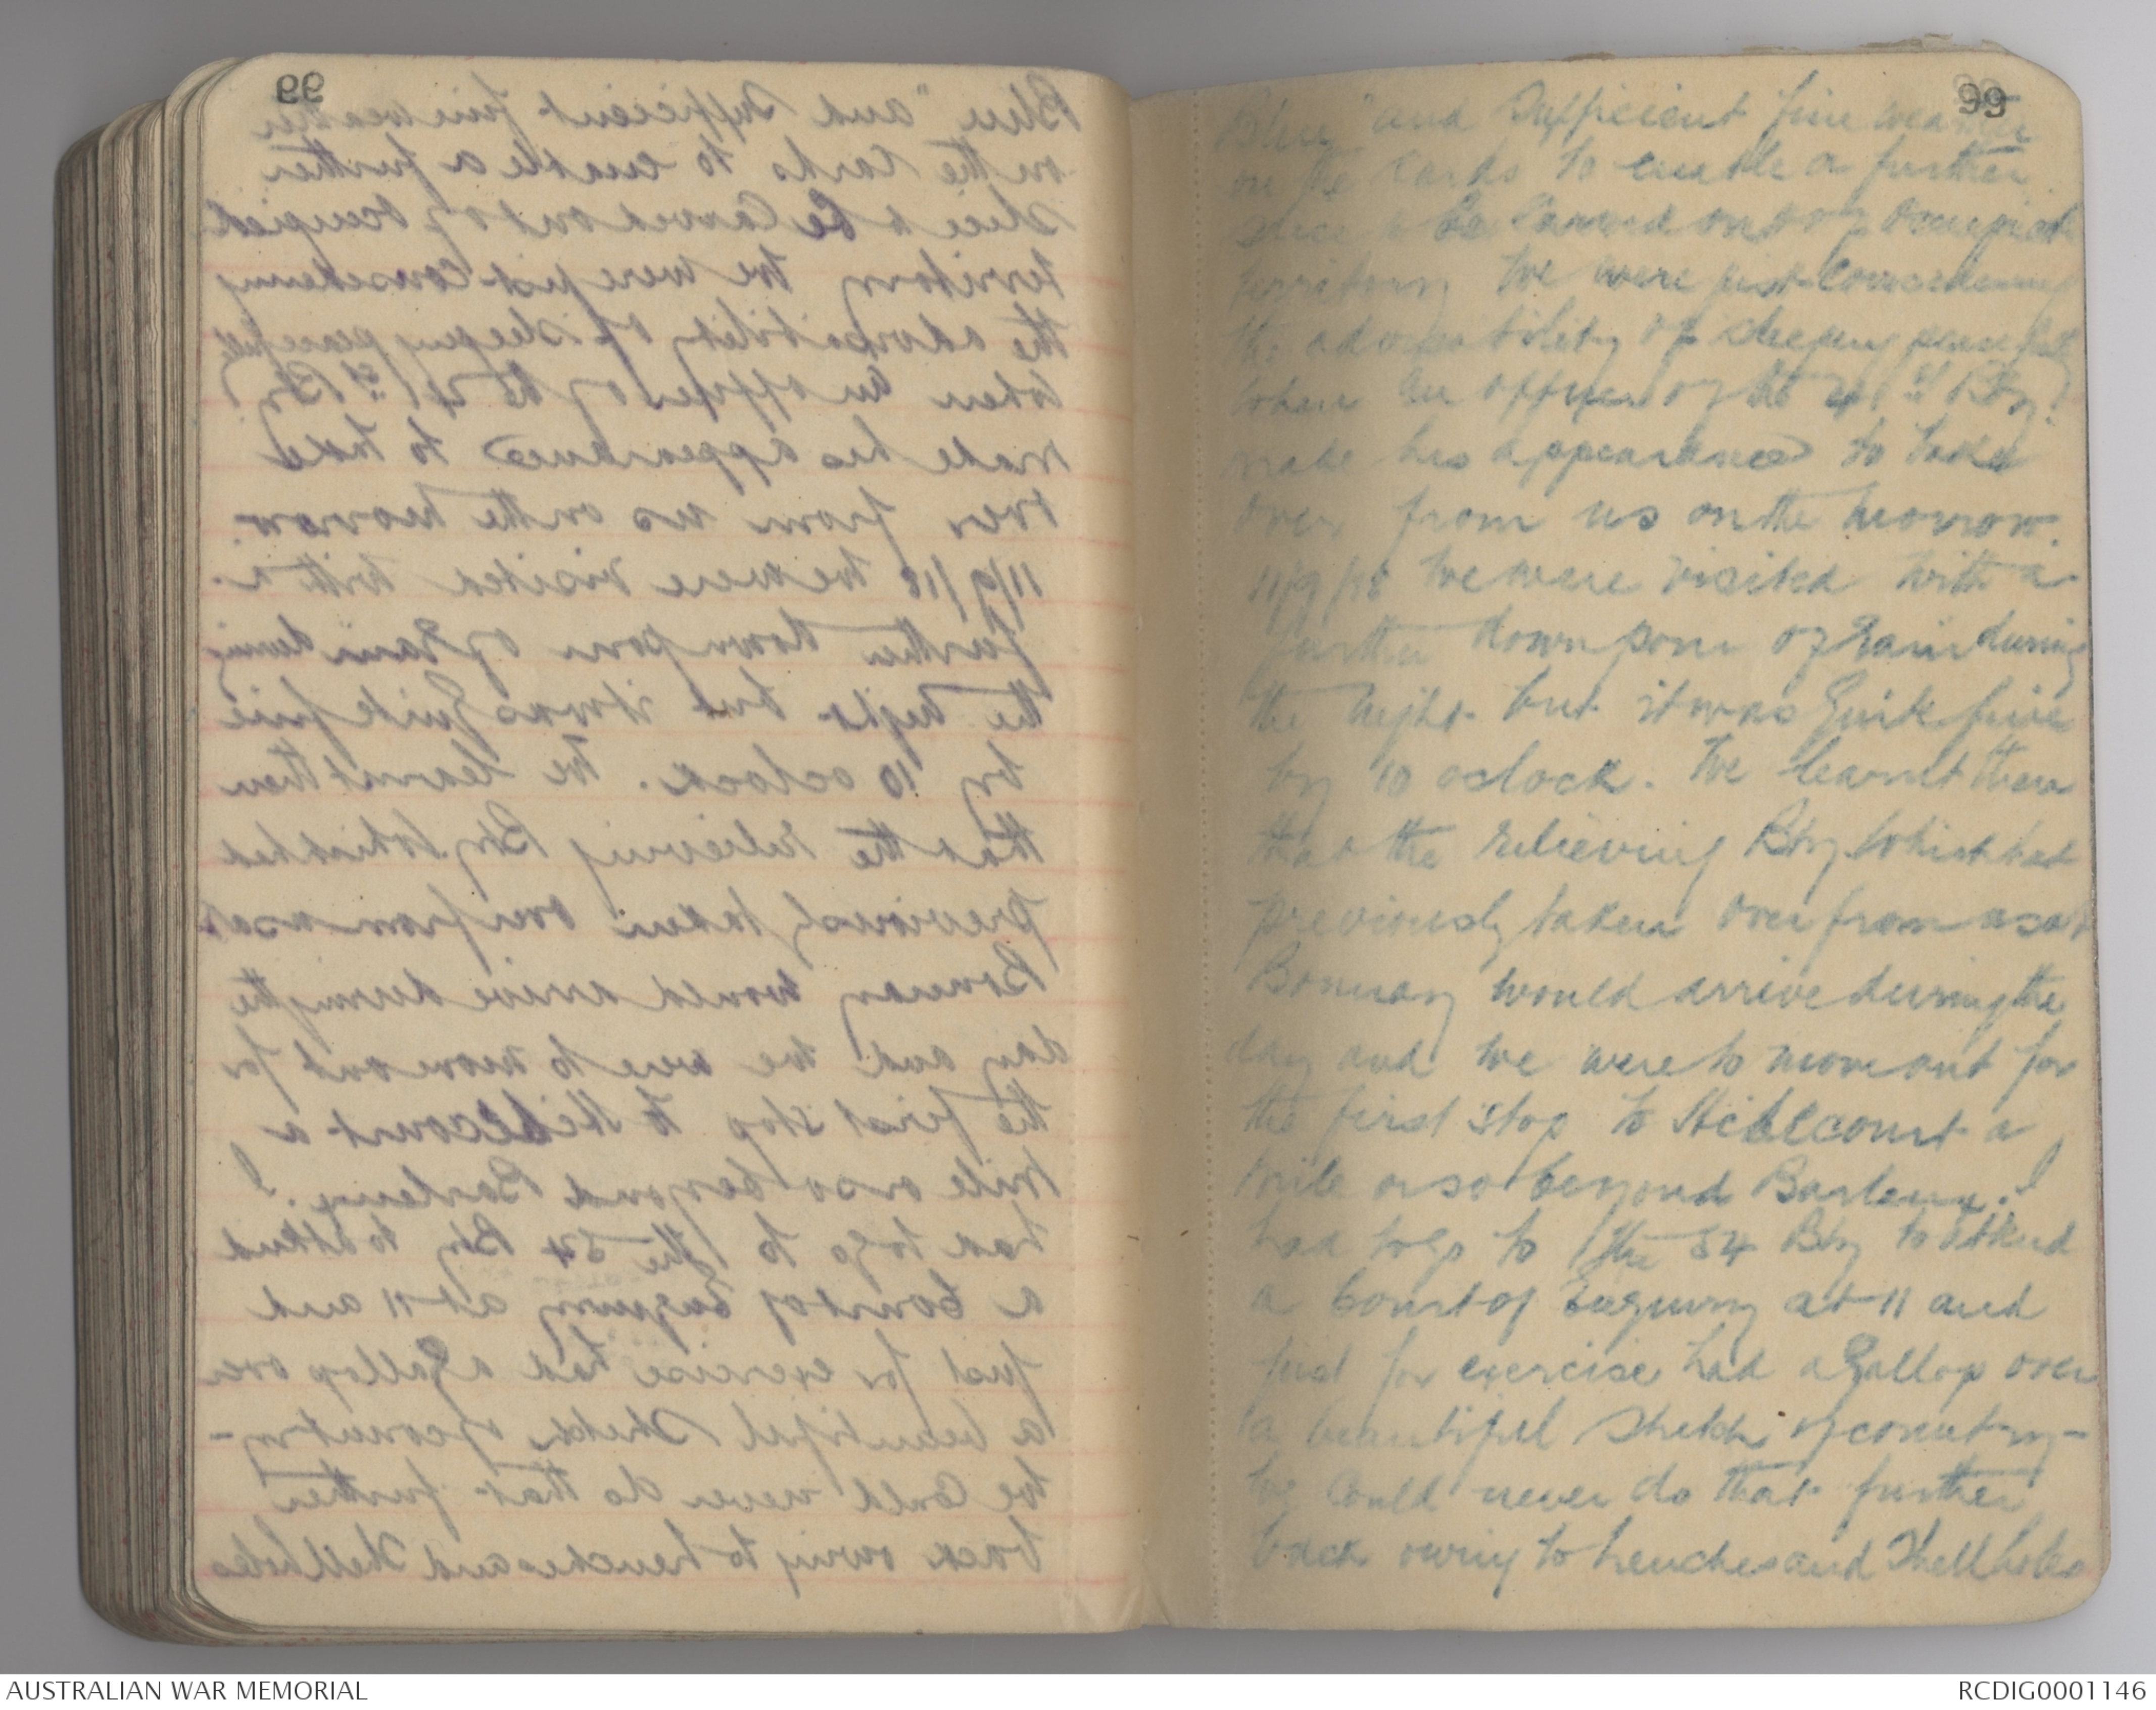 99
Blue" and sufficient fine weather
on the cards to enable a further
slice to be carved out of occupied
territory We were just considering
the advisability of sleeping peacefully
when an officer of the 41st Bty
made his appearance to take
over from us on the morrow.
11/9/18 We were visited with a
further downpour of rain during
the night but it was quite fine
by 10 oclock. We learnt then
that the relieving Bty which had
previously taken over from us at
Bonnay would arrive during the
day and we were to move out for
the first stop to Herbecourt a
mile or so beyond Barleux. I
had to go to the 54 Bty to attend
a Court of Enquiry at 11 and
just for exercise had a gallop over
a beautiful stretch of country -
we could never do that further
back owing to trenches and shell holes
AUSTRALIAN WAR MEMORIAL
RCDIG0001146